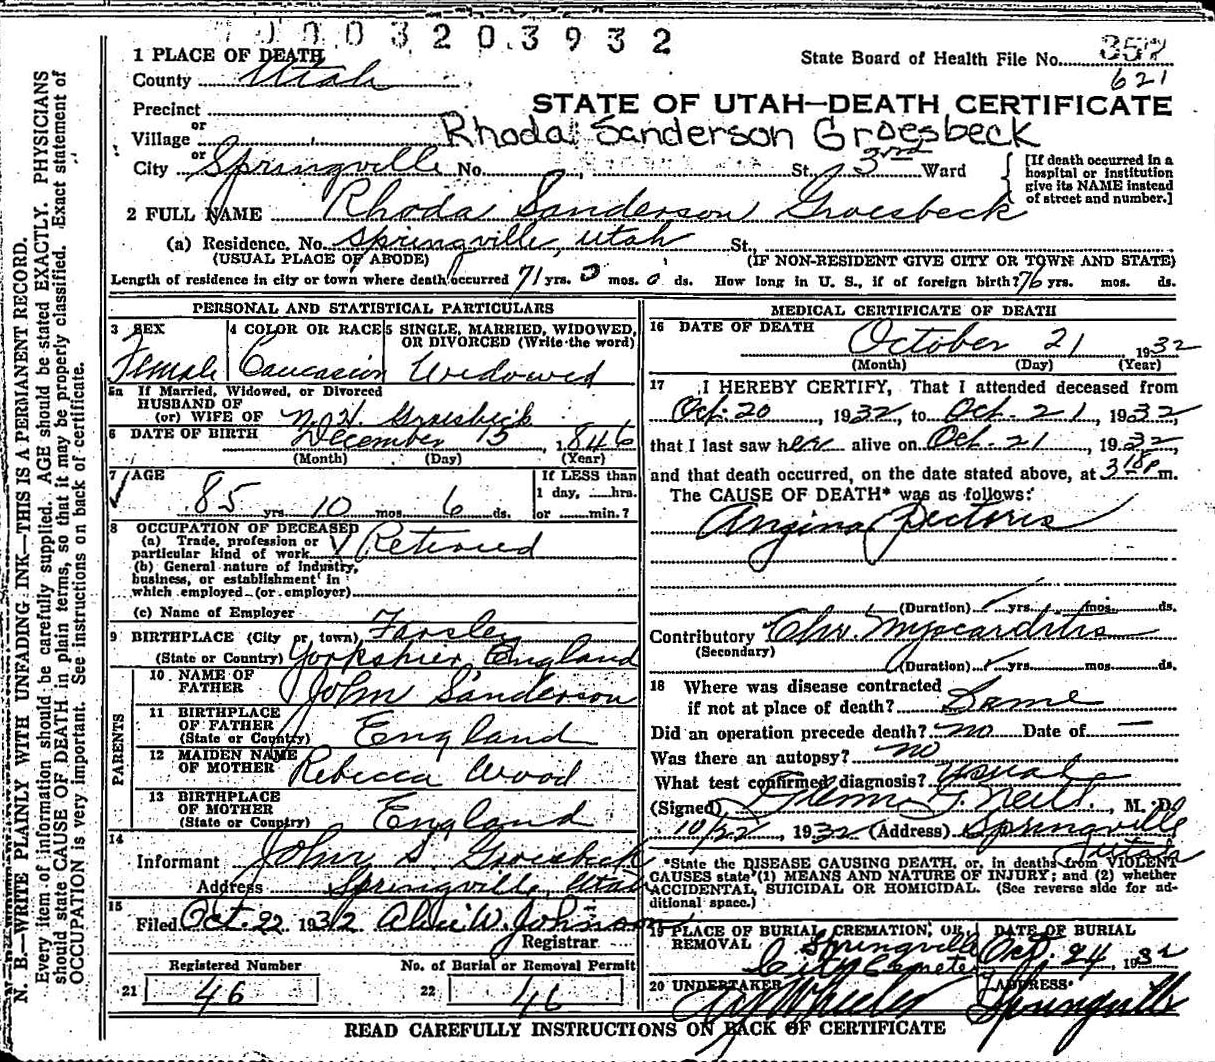 0003203932
1 PLACE OF DEATH
State Board of Health File No. 357
County Utah
621
STATE OF UTAH—DEATH CERTIFICATE
Precinct
or
Village
Rhoda Sanderson Groesbeck
or
City Springville No. St. 3rd Ward
[If death occurred in a hospital or institution give its NAME instead of street and number.]
2 FULL NAME Rhoda Sanderson Groesbeck
(a) Residence. No. Springville, Utah St.
(USUAL PLACE OF ABODE) (IF NON-RESIDENT GIVE CITY OR TOWN AND STATE)
Length of residence in city or town where death occurred 71 yrs. 0 mos. 0 ds. How long in U. S., if of foreign birth? 76 yrs. mos. ds.
PERSONAL AND STATISTICAL PARTICULARS
3 SEX
Female
4 COLOR OR RACE
Caucasion
5 SINGLE, MARRIED, WIDOWED, OR DIVORCED (Write the word)
Widowed
5a If Married, Widowed, or Divorced
HUSBAND OF
(or) WIFE OF N. H. Groesbeck
6 DATE OF BIRTH December 15, 1846
(Month) (Day) (Year)
7 AGE
85 yrs 10 mos. 6 ds.
If LESS than
1 day, hrs.
or min.?
8 OCCUPATION OF DECEASED
(a) Trade, profession or
particular kind of work Retired
(b) General nature of industry,
business, or establishment in
which employed (or employer)
(c) Name of Employer
9 BIRTHPLACE (City or town) Farsley
(State or Country) Yorkshier England
PARENTS
10 NAME OF FATHER John Sanderson
11 BIRTHPLACE OF FATHER (State or Country) England
12 MAIDEN NAME OF MOTHER Rebecca Wood
13 BIRTHPLACE OF MOTHER (State or Country) England
14
Informant John S. Groesbeck
Address Springville, Utah
15
Filed Oct. 22 1932 W. Johnson
Registrar
Registered Number
21 46
No. of Burial or Removal Permit
22 46
MEDICAL CERTIFICATE OF DEATH
16 DATE OF DEATH
October 21 1932
(Month) (Day) (Year)
17 I HEREBY CERTIFY, That I attended deceased from
Oct. 20, 1932, to Oct. 21, 1932
that I last saw her alive on Oct. 21, 1932,
and that death occurred, on the date stated above, at 3 18 P. m.
The CAUSE OF DEATH* was as follows:
Angina Pectoris
(Duration) yrs. mos. ds.
Contributory Chr. Myocarditis
(Secondary)
(Duration) yrs. mos. ds.
18 Where was disease contracted
if not at place of death? Same
Did an operation precede death? no Date of —
Was there an autopsy? no
What test confirmed diagnosis? usual
(Signed) M. D.
10/22, 1932 (Address) Springville
Utah
*State the DISEASE CAUSING DEATH, or, in deaths from VIOLENT
CAUSES state (1) MEANS AND NATURE OF INJURY; and (2) whether
ACCIDENTAL, SUICIDAL OR HOMICIDAL. (See reverse side for ad-
ditional space.)
19 PLACE OF BURIAL, CREMATION, OR REMOVAL
Springville
City Cemetery
DATE OF BURIAL
Oct. 24, 1932
20 UNDERTAKER
Wheeler
ADDRESS
Springville
READ CAREFULLY INSTRUCTIONS ON BACK OF CERTIFICATE
N. B.—WRITE PLAINLY WITH UNFADING INK—THIS IS A PERMANENT RECORD.
Every item of information should be carefully supplied. AGE should be stated EXACTLY. PHYSICIANS
should state CAUSE OF DEATH in plain terms, so that it may be properly classified. Exact statement of
OCCUPATION is very important. See instructions on back of certificate.